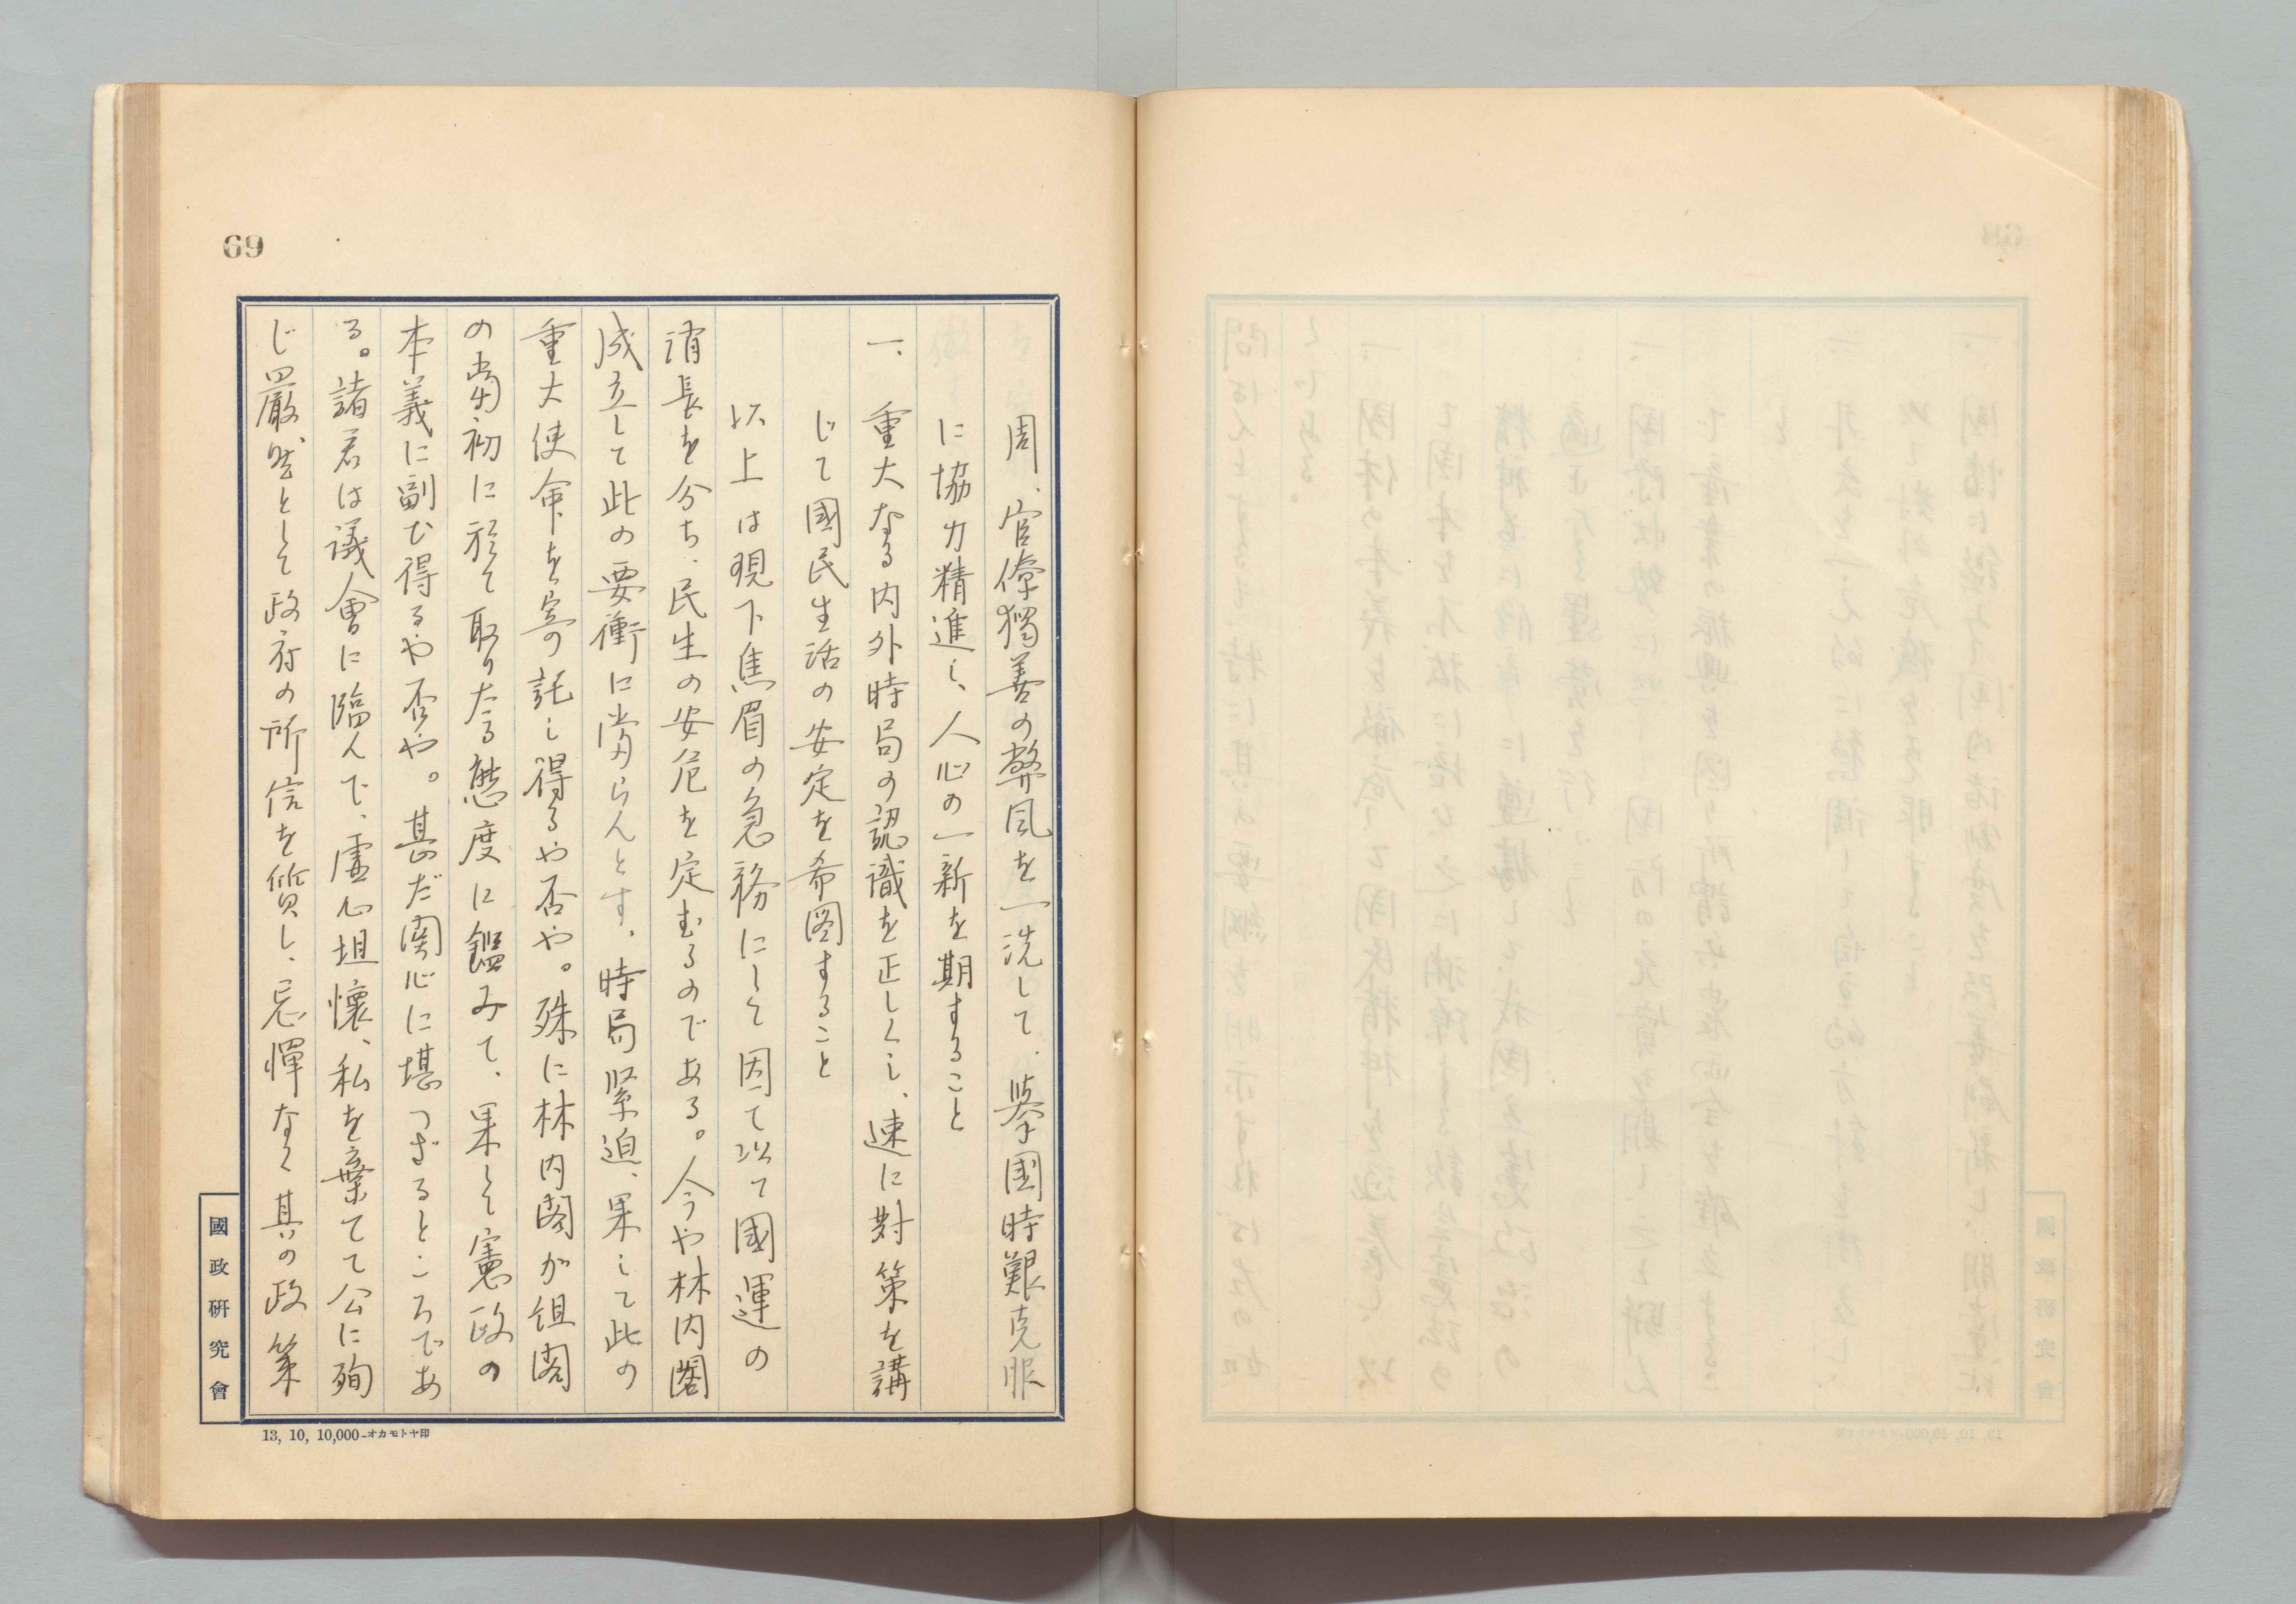 69
周、官僚獨善の弊風を一洗して、擧國時艱克服
に協力精進し、人心の一新を期すること
一、重大なる内外時局の認識を正しくし、速に對策を講
じて國民生活の安定を希圖すること
以上は現下焦眉の急務にして因て以て國運の
消長を分ち、民生の安危を定むるのである。今や林内閣
成立して此の要衝に當らんとす。時局緊迫、果して此の
重大使命を寄託し得るや否や。殊に林内閣が組閣
の当初に於て取りたる態度に鑑みて、果して憲政の
本義に副ひ得るや否や。甚だ関心に堪へざるところであ
る。諸君は議會に臨んで、虚心坦懐、私を棄てて公に殉
じ嚴然として政府の所信を質し、忌憚なく其の政策
國政研究會
13, 10, 10,000-オカモトヤ印